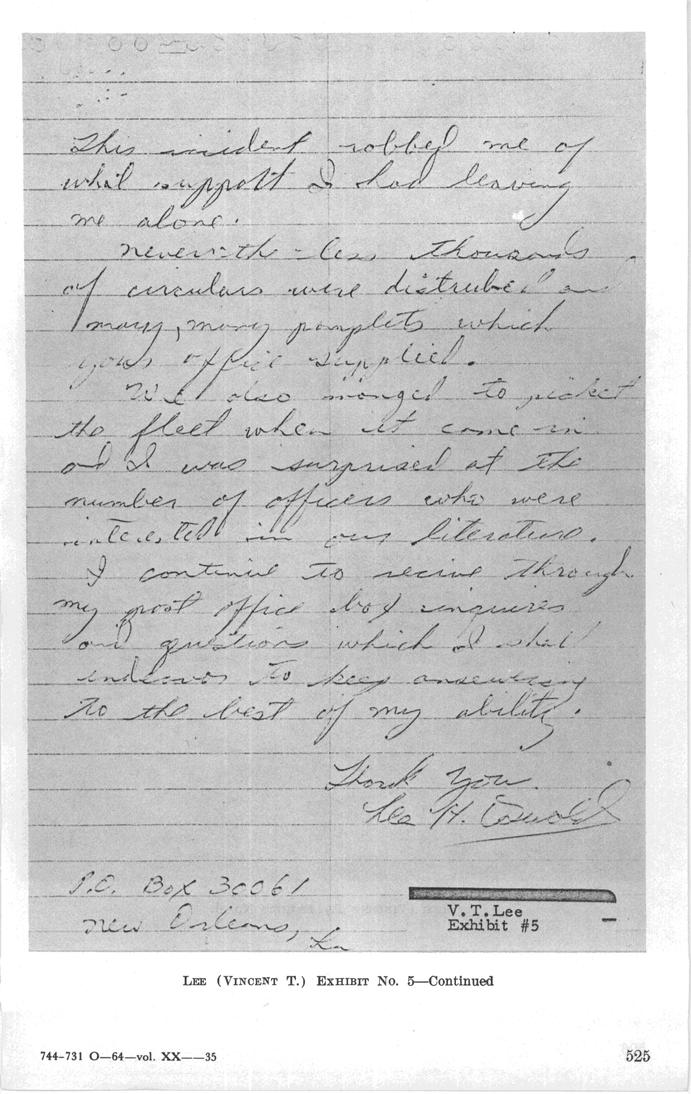 This incident robbed me of
what support I had leaving
me alone.
Neverthe-less thousands
of circulars were distrubed and
many, many pamplets which
your office supplied.
We also manged to picket
the fleet when it came in
and I was surprised at the
number of officers who were
interested in our literature.
I continue to recive through
my post office box inquires
and questions which I shall
endeavor to keep ansewering
to the best of my ability.
Thank You
Lee H. Oswald
P.O. Box 30061
New Orleans, La
V.T.Lee
Exhibit #5
LEE (VINCENT T.) EXHIBIT NO. 5—Continued
744-731 O—64—vol. XX——35
525